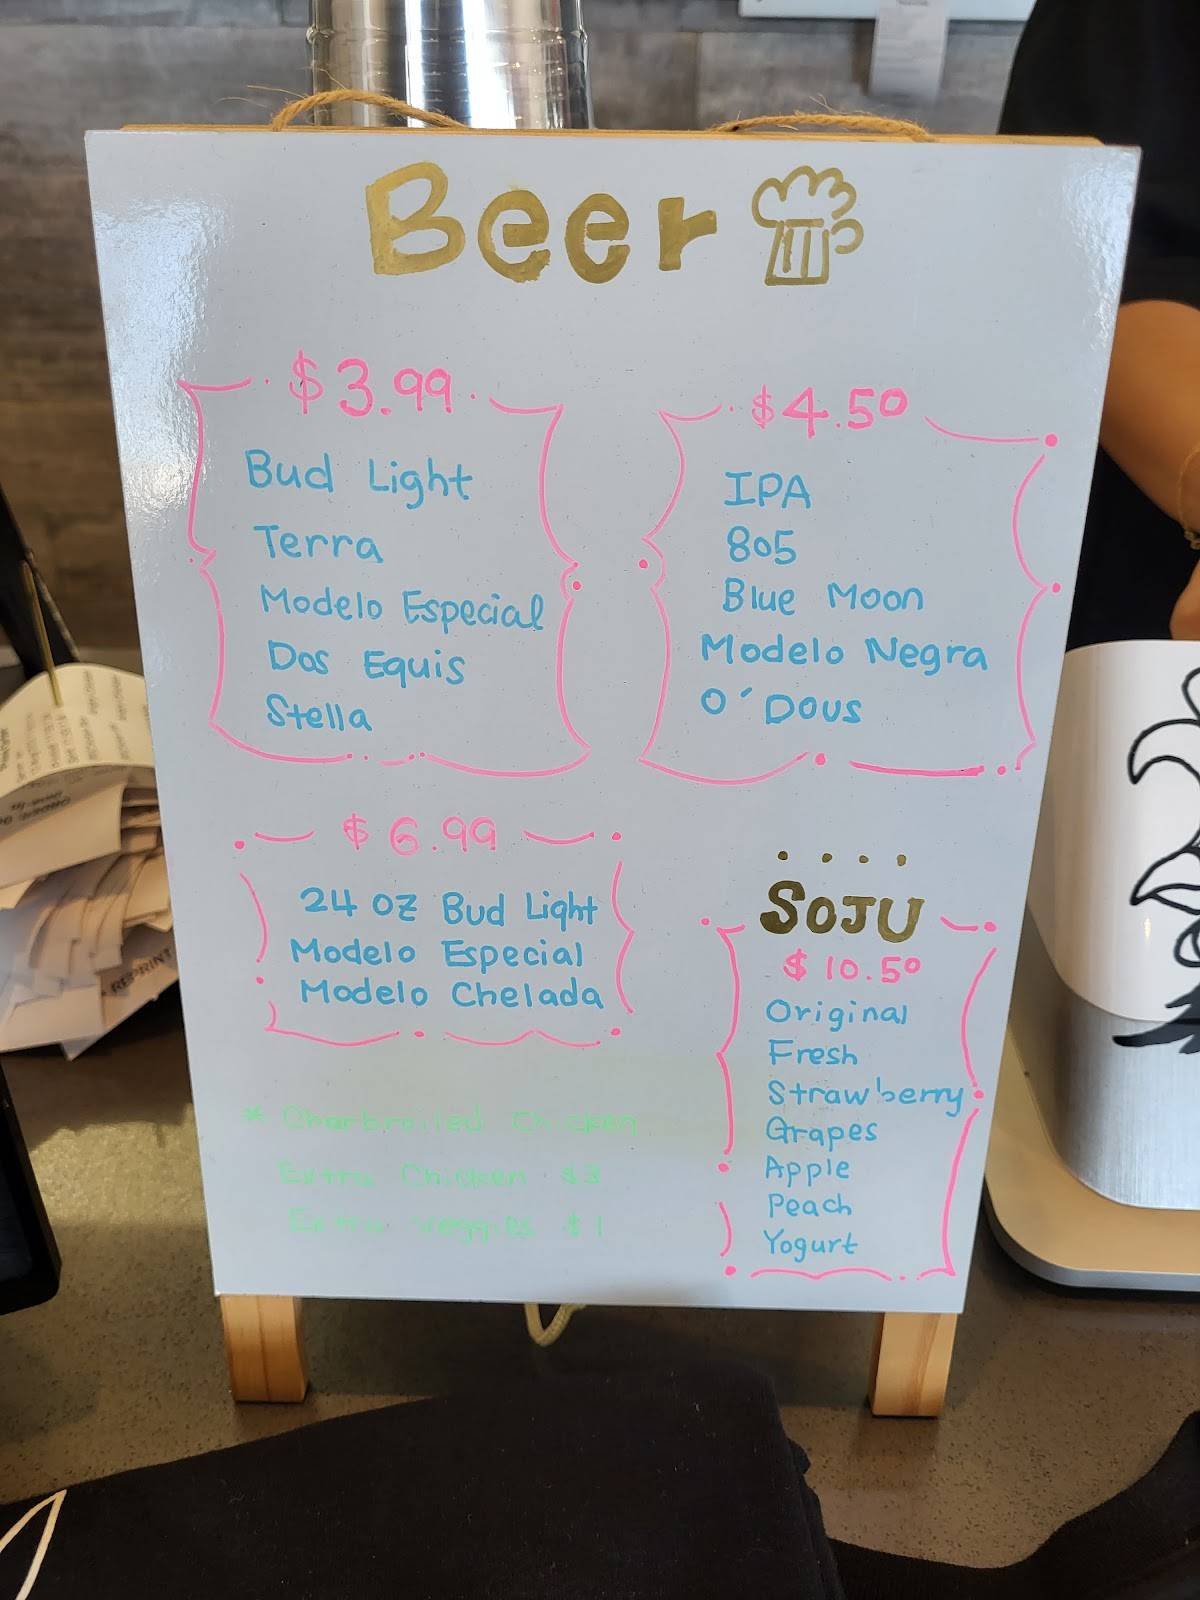 Beer
$3.99
Bud Light
Terra
Modelo Especial
Dos Equis
Stella
$4.50
IPA
805
Blue Moon
Modelo Negra
O'Dous
$6.99
24 oz Bud Light
Modelo Especial
Modelo Chelada
SOJU
$10.50
Original
Fresh
Strawberry
Grapes
Apple
Peach
Yogurt
* Charbroiled Chicken
Extra Chicken $3
Extra Veggies $1
REPRINT